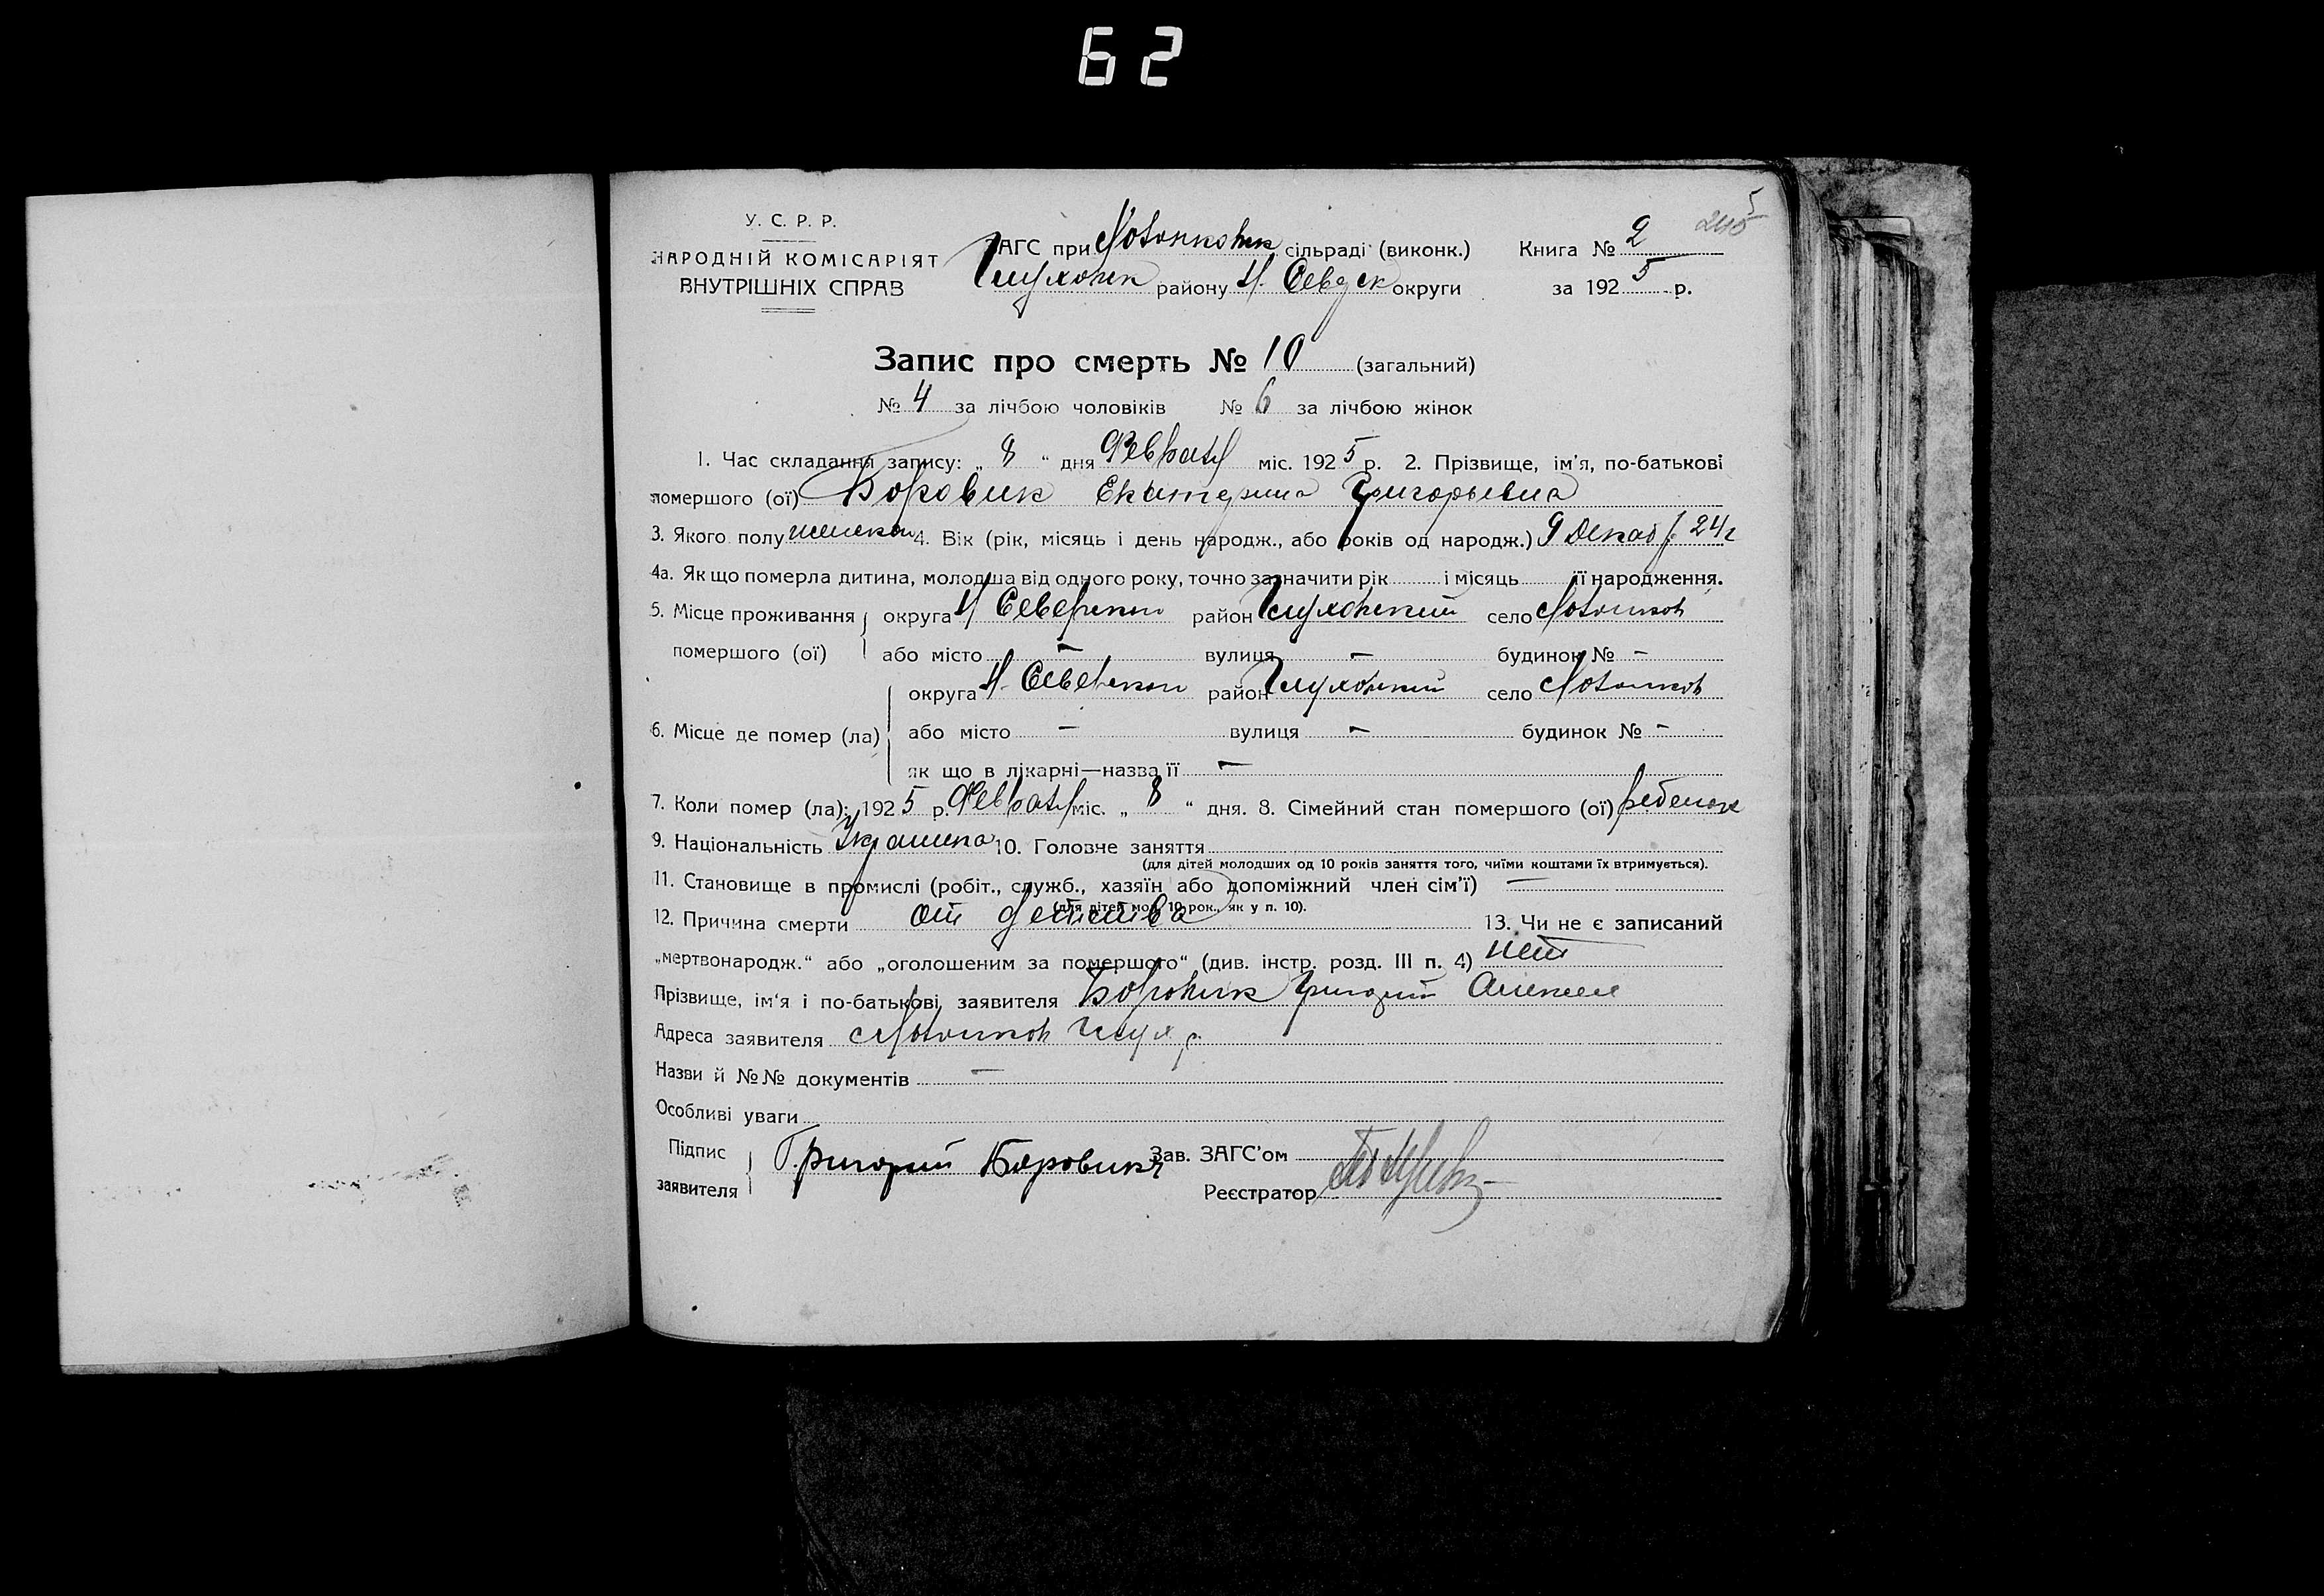 62
У. С. Р. Р.
НАРОДНІЙ КОМІСАРІЯТ
ВНУТРІШНІХ СПРАВ
ЗАГС при сільраді (виконк.)
Глуховск району Н. Севрск округи
Книга № 2
за 1925 р.
Запис про смерть № 10 (загальний)
№ 4 за лічбою чоловіків № 6 за лічбою жінок
1. Час складання запису: „ 8 “ дня Февраля міс. 1925 р. 2. Прізвище, ім'я, по-батькові
помершого (ої) Боровик Екатерина Григорьевна
3. Якого полу женскаго 4. Вік (рік, місяць і день народж., або років од народж.) 9 Декабр. 24 г
4а. Як що померла дитина, молодша від одного року, точно зазначити рік і місяць її народження.
5. Місце проживання помершого (ої) округа Н Северской район Глуховский село
або місто — вулиця — будинок № —
6. Місце де помер (ла) округа Н. Северской район Глуховский село
або місто — вулиця — будинок № —
як що в лікарні—назва її —
7. Коли помер (ла): 1925 р. Февраля міс. „ 8 “ дня. 8. Сімейний стан помершого (ої) ребенок
9. Національність Украинка 10. Головне заняття
(для дітей молодших од 10 років заняття того, чиїми коштами їх втримується).
11. Становище в промислі (робіт., служб., хазяїн або допоміжний член сім'ї) —
(для дітей мол. 10 рок., як у п. 10).
12. Причина смерти от детства 13. Чи не є записаний
„мертвонародж.“ або „оголошеним за помершого“ (див. інстр. розд. III п. 4) нет
Прізвище, ім'я і по-батькові заявителя Боровик Григорий Алексее
Адреса заявителя Глух р.
Назви й №№ документів —
Особливі уваги
Підпис заявителя Григорий Боровикъ
Зав. ЗАГС'ом
Реєстратор